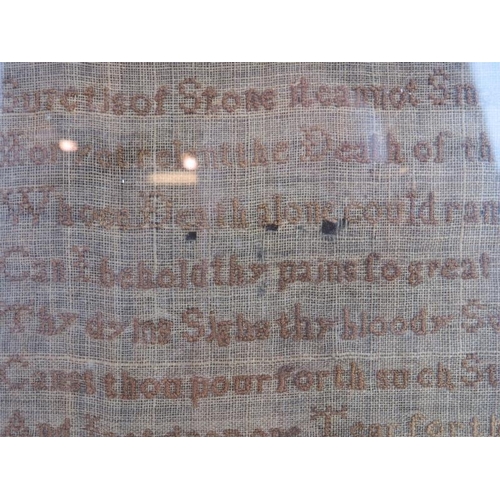 Sure tis of Stone it cannot Sm
the Death of th
Whose Death alone could ran
Can I behold thy pains so great
Thy dying Sighs thy bloody S
Canst thou pour forth such St
And Tear for th